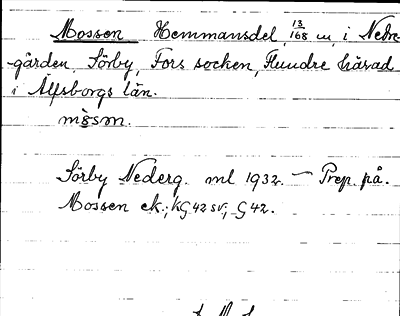 Mossen Hemmansdel, 13/168 m, i Nedre-
-gården Sörby, Fors socken, Flundre härad
i Älfsborgs län.
mɷ̀sm.
Sörby Nederg. ml 1932. — Prep. på.
Mossen ek.; kG 42 sv; G 42.